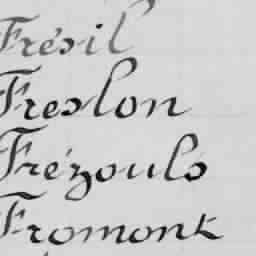 Frésil
Freslon
Frézouls
Fromont